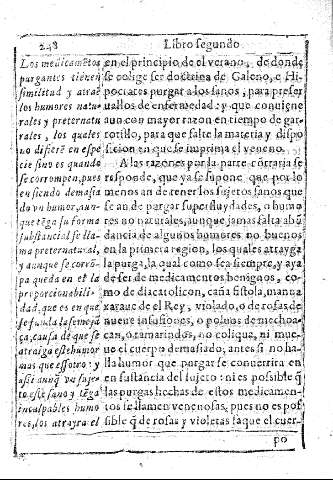 248
Libro segundo
Los medicamẽtos
purgantes tienen
similitud y atraẽ
los humores natu
rales y preternatu
rales, los quales
no difierẽ en espe
cie sino es quando
se corrompen, pues
en siendo demasia
do un humor, aun
que tẽga su forma
substancial se lla-
ma preternatural,
y aunque se corrõ-
pa queda en el la
proporcionabili-
dad, que es en que
se funda la semejã
ça, causa de que se
atraiga este humor
mas que essotro: y
assi aunq̃ un suje-
to este sano y tẽga
inculpables humo
res, los atrayra el
en el principio de el verano, de donde
se colige ser doctrina de Galeno, e Hi-
pocrates purgar a los sanos, para preser
uallos de enfermedad: y que conuiene
aun con mayor razon en tiempo de gar-
rotillo, para que falte la materia y dispo
sicion en que se imprima el veneno.
A las razones por la parte cõtraria se
responde, que ya se supone que por lo
menos an de tener los sujetos sanos que
se an de purgar superfluydades, o humo
res no naturales, aunque jamas falta abũ
dancia de algunos humores no buenos
en la primera region, los quales atrayga
la purga, la qual como sea siempre, y aya
de ser de medicamentos benignos, co-
mo de diacatolicon, caña fistola, manna
xaraue de el Rey, violado, o de rosas de
nueue infusiones, o poluos de mechoa-
can, o tamarindos, no colique, ni mue-
ue el cuerpo demasiado, antes si no ha-
lla humor que purgar se conuertira en
en sustancia del sujeto: ni es posible q̃
las purgas hechas de estos medicamen-
tos se llamen venenosas, pues no es pos
sible q̃ de rosas y violetas saque el cuer-
po